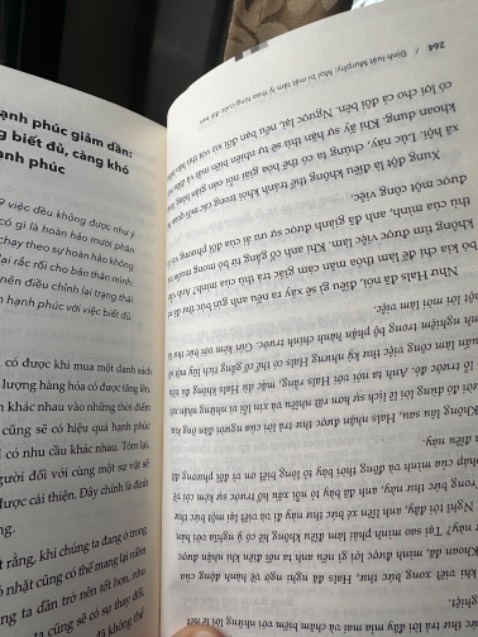 ạnh phúc giảm dần:
g biết đủ, càng khó
ạnh phúc
việc đều không được như ý
có gì là hoàn hảo mười phân
chạy theo sự hoàn hảo không
ại rắc rối cho bản thân mình.
nên điều chỉnh lại trạng thái
n hạnh phúc với việc biết đủ.
có được khi mua một danh sách
lượng hàng hóa có được tăng lên,
n khác nhau vào những thời điểm
cũng sẽ có hiệu quả hạnh phúc
có nhu cầu khác nhau. Tóm lại,
gười đối với cùng một sự vật sẽ
được cải thiện. Đây chính là định
ng.
t rằng, khi chúng ta đang ở trong
nhất cũng có thể mang lại niềm
ng ta dần trở nên tốt hơn, nhu
ta cũng sẽ có sự thay đổi,
đã không thể
ức thư trả lời đầy mỉa mai và châm biếm với những lời lẽ
nghiệt.
khi viết xong bức thư, Hals đã nghĩ ngợi về hành động của
Khoan đã, mình được lợi gì nếu anh ta nổi điên khi nhận được
này? Tại sao mình phải làm điều không hề có ý nghĩa với bản
Nghĩ tới đây, anh liền xé bức thư này đi và viết lại một bức thư
rong bức thư này, anh đã bày tỏ nỗi xấu hổ trước sự kém cỏi
pháp của mình và đồng thời bày tỏ lòng biết ơn vì đối phương đã
a điều này.
Không lâu sau, Hals nhận được thư trả lời của người đàn ông kia.
ười đó dùng lời lẽ lịch sự hơn rất nhiều và xin lỗi vì những
lỗ trước đó. Anh ta nói với Hals rằng, mặc dù Hals không đủ
uẩn làm công việc thư ký nhưng Hals có thể cố gắng tích lũy một số
nh nghiệm trong bộ phận hành chính trước. Gửi kèm với bức thư là
một lời mời làm việc.
Như Hals đã nói, điều gì sẽ xảy ra nếu anh gửi bức thư
bỏ kia chỉ để làm thỏa mãn cảm giác trả thù của mình?
không tìm được việc làm. Khi anh cố gắng từ bỏ mong muốn
thù của mình, anh đã giành được sự ưu ái của đối phương và
được một công việc.
Xung đột là điều không thể tránh khỏi trong các mối quan hệ
xã hội. Lúc này, chúng ta có thể hóa giải nỗi oán giận bằng
khoan dung. Khi ấy sự hận thù sẽ tự nhiên biến mất và
có lợi cho cả đôi bên. Ngược lại, nếu bạn đối xử với
264 / Định luật Murphy: Mọi bí mật tâm lý thao túng cuộc đời bạn